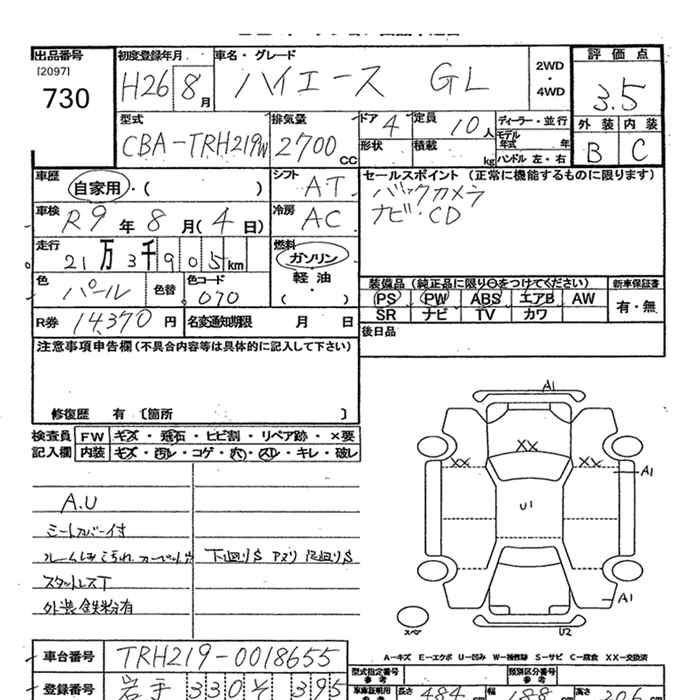 出品番号
[2097]
730
初度登録年月
H26 8月
車名・グレード
ハイエース GL
2WD
・
4WD
評価点
3.5
外装 内装
B C
型式
CBA-TRH219W
排気量
2700 CC
ドア 4
形状
定員 10人
積載 kg
ディーラー・並行
モデル年式 年
ハンドル 左・右
車歴
自家用・( )
シフト
AT
車検
R9年 8月(4日)
冷房
AC
セールスポイント (正常に機能するものに限ります)
バックカメラ
ナビ・CD
走行
21万3千905km
燃料
ガソリン
軽油
・( )
色
パール
色替
色コード
070
装備品(純正品に限り○をつけてください)
PS PW ABS エアB AW
SR ナビ TV カワ
新車保証書
有・無
R券 14,370円
名変通知期限 月 日
後日品
注意事項申告欄(不具合内容等は具体的に記入して下さい)
修復歴 有 〔箇所 〕
検査員
記入欄
FW キズ・飛石・ヒビ割・リペア跡・×要
内装 キズ・汚レ・コゲ・穴・スレ・キレ・破レ
A.U
シートカバー付
スタットレスT
外装鉄粉有
下廻りS アメリ 足廻りS
A1
XX
XX XX
A1
U1
A1
U2
スペア
A-キズ E-エクボ U-凹み W-補修跡 S-サビ C-腐食 XX-交換済
車台番号
TRH219-0018655
登録番号
岩手 330 そ 395
型式指定番号
参考
類別区分番号
参考
車庫証明用
参考
長さ 484 cm
幅 188 cm
高さ 206 cm